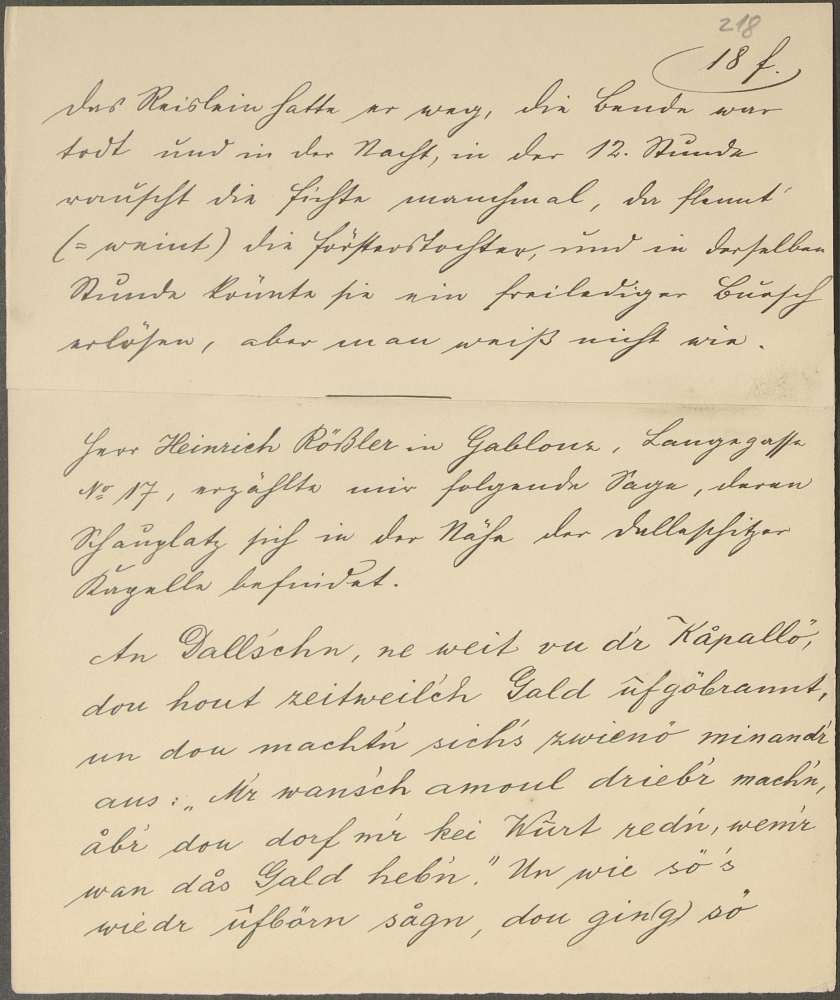 218
18 f.
das Reislein hatte er weg, die Bende war
todt und in der Nacht, in der 12. Stunde
rauscht die Fichte manchmal, da flennt'
(= weint) die Försterstochter, und in derselben
Stunde könnte sie ein freilediger Bursch
erlösen, aber man weiß nicht wie.
Herr Heinrich Rößler in Gablonz, Langegasse
No 17, erzählte mir folgende Sage, deren
Schauplatz sich in der Nähe der Dalleschitzer
Kapelle befindet.
An Dall'schn, ne weit vu d'r Kåpallö,
dou hout zeitweil'ch Gald ûfgöbrannt,
un dou macht'n sich's zwienö minand'r
aus: „M'r wans'ch amoul drieb'r mach'n,
åb'r dou dorf m'r kei Wûrt red'n, wem'r
wan dås Gald heb'n." Un wie sö's
wiedr ûfbörn sågn, dou gin(g) sö